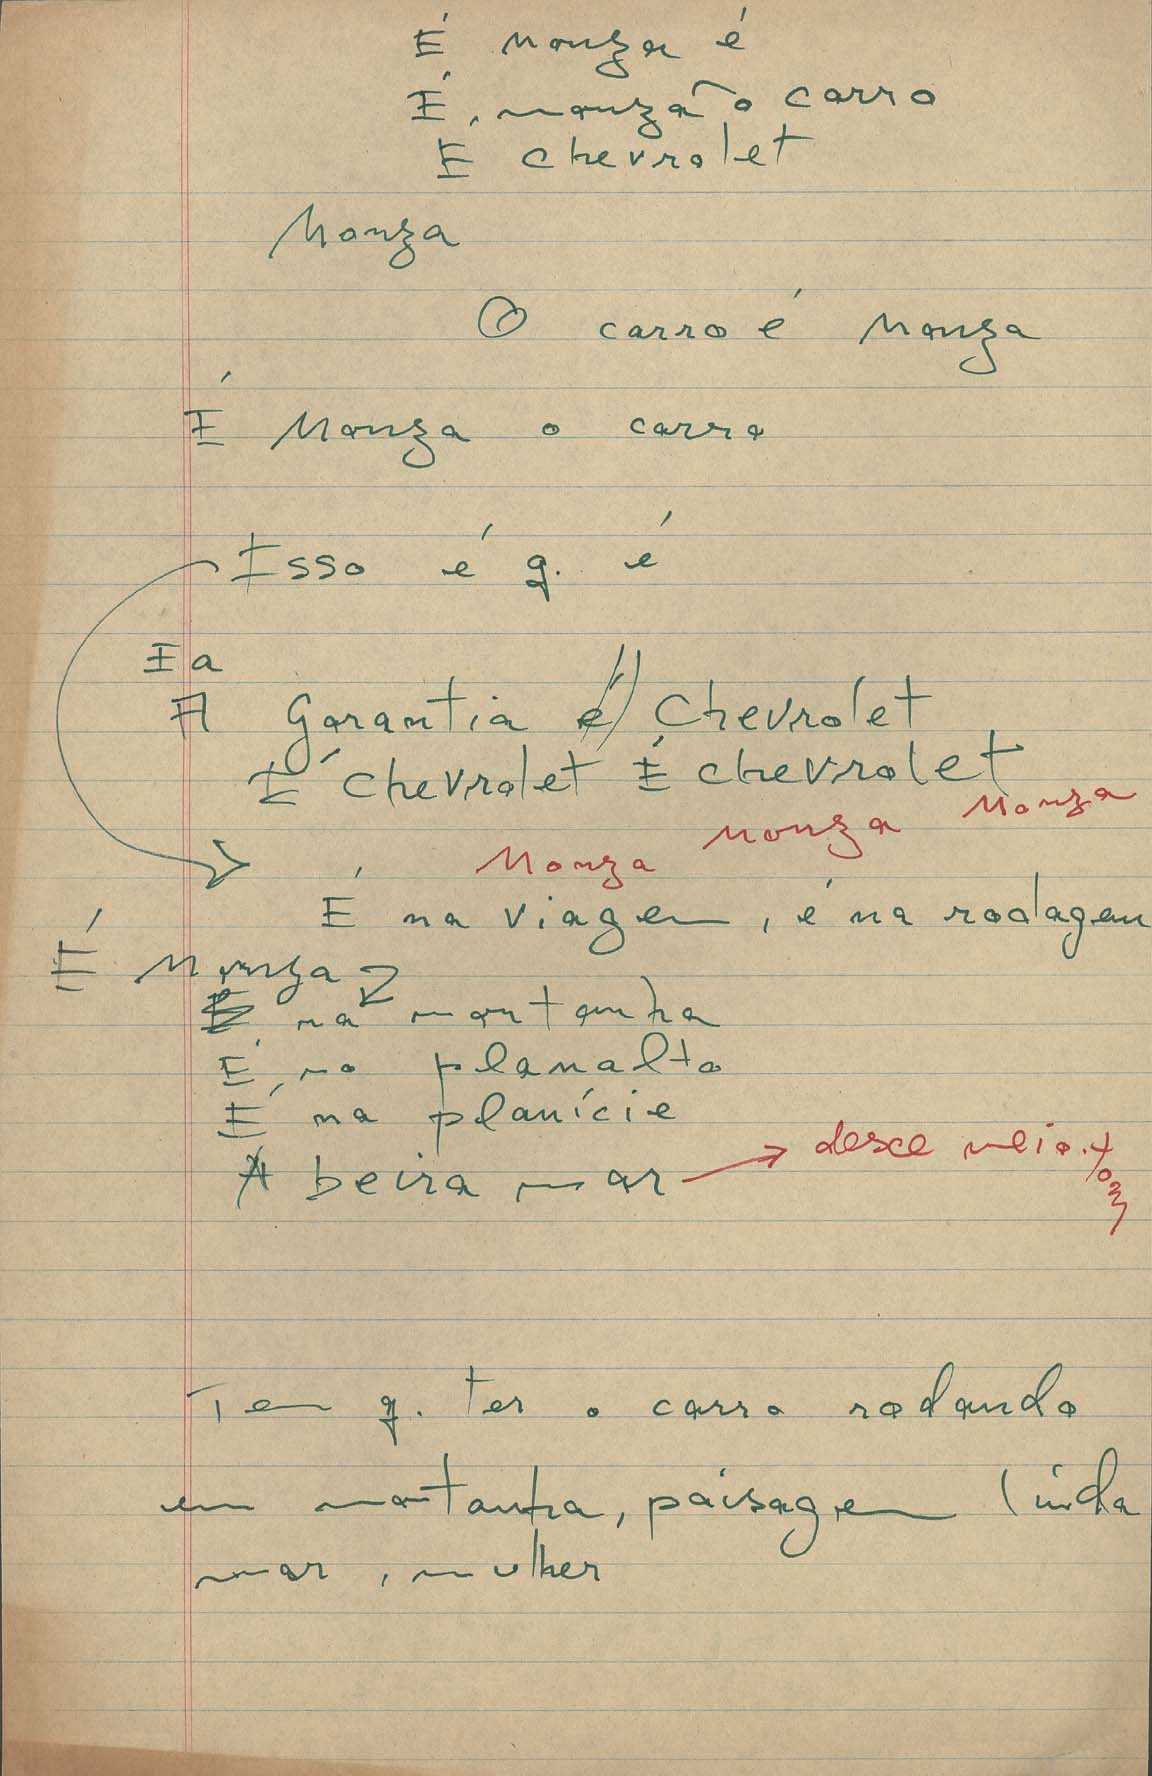 É Monza é
É, monza o carro
E chevrolet
Monza
O carro é Monza
É Monza o carro
Isso é q. é
E a
A Garantia é Chevrolet
É chevrolet É chevrolet
Monza Monza Monza
É na viagem, é na rodagem
É Monza
É na montanha
É no planalto
É na planície
A beira mar → desce meio tom
Tem q. ter o carro rodando
em montanha, paisagem linda
mar, mulher